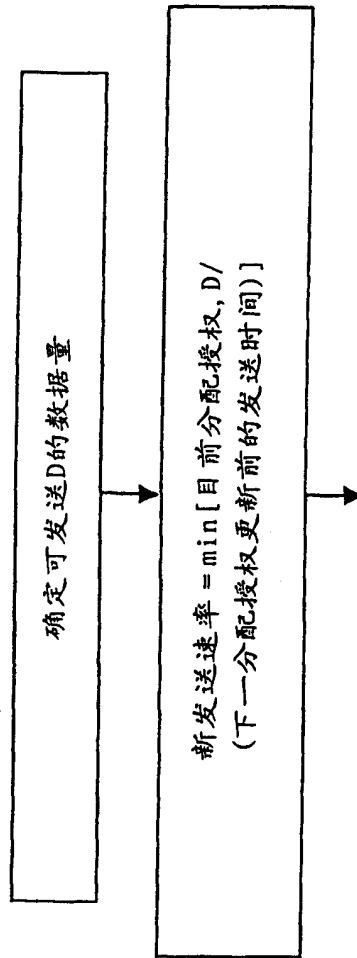 确定可发送D的数据量
新发送速率=min[目前分配授权,D/
(下一分配授权更新前的发送时间)]